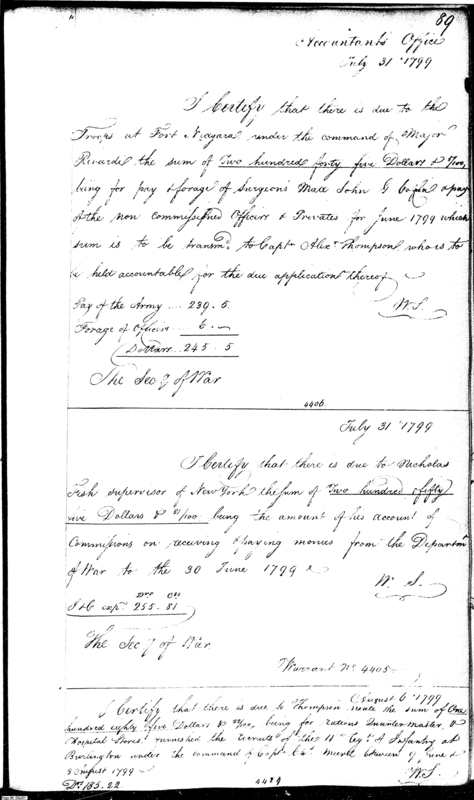 89
Accountants Office
July 31st 1799
I Certify that there is due to the
Troops at Fort Niagara under the command of Major
Rivardi the sum of Two hundred forty five Dollars & 5/100,
being for pay & forage of Surgeons Mate John G &pay
of the non commissioned Officers & Privates for June 1799 which
sum is to be transmd. to Capt. Alexr. Thompson who is to
be held accountable for the due application thereof
W.S.
Pay of the Army ... 239. 5.
Forage of Officers 6. —
Dollars .. 245. 5
The Secy of War
4406.
July 31st 1799
I Certify that there is due to Nicholas
Fish supervisor of New York the sum of Two hundred & fifty
five Dollars & 81/100 being the amount of his account of
Commissions on receiving & paying monies from the Departm
of War to the 30 June 1799
W. S.
Drs Cts
255. 81
The Secy of War.
Warrant No. 4405
August 6th 1799
I Certify that there is due to Thompson the sum of One
hundred eighty five Dollars & 22/100, being for rations Quarter Master, &
Hospital Stores, furnished the recruits of the 11th Regt. Infantry at
Burlington under the command of Capt. in June &
August 1799
W.S.
Ds. 185.22
4429